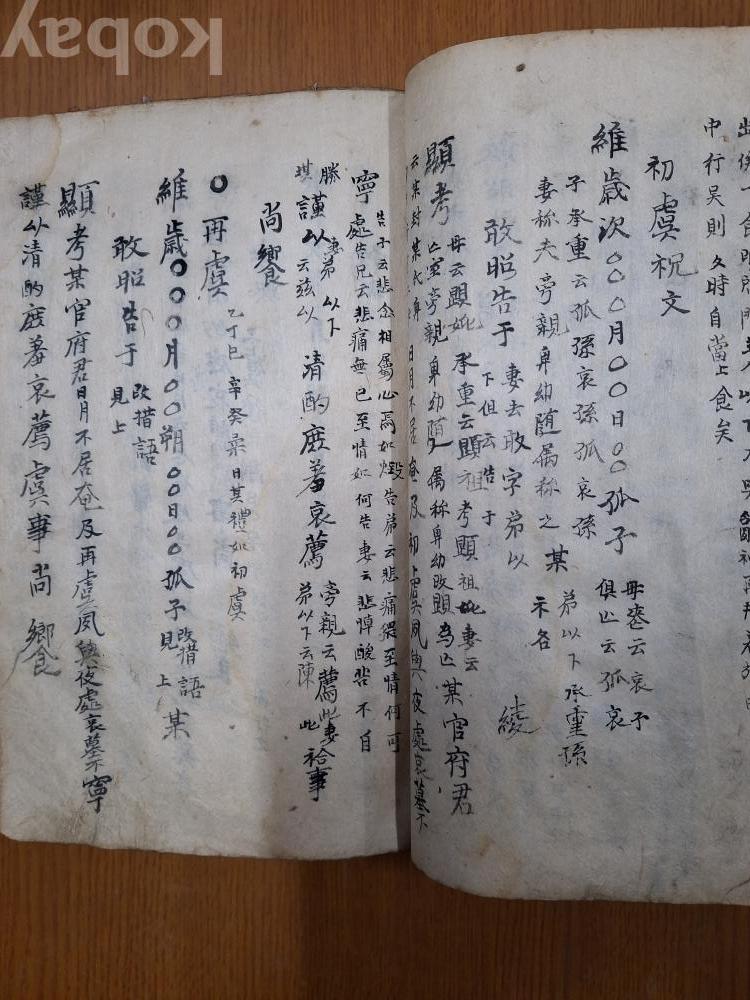 中行吳則 夕時自當上食矣
初虞祝文
維歲次〇〇月〇〇日〇〇孤子 母喪云哀子 俱亡云孤哀
子承重云孤孫哀孫孤哀孫
妻称夫旁親卑幼随属称之 某 弟以下 承重孫 不名
敢昭告于 妻去敢字弟以 下但云告于 綾
顯考 母云顯妣 承重云顯祖考顯祖妣妻云 亡室旁親卑幼随属称卑幼改顯為亡 某官府君
云某封某氏 日月不居奄及初虞夙興夜處哀慕不
寧 告子云悲念相属心焉如燬告弟云悲痛猥至情何可 處告兄云悲痛無已至情如何告妻云悲悼酸苦不自
勝 堪 謹以 妻弟以下 云玆以 清酌庶羞哀薦 旁親云薦此妻 弟以下云陳此 祫事
尚饗
〇再虞 乙丁巳辛癸柔日其禮如初虞
維歲〇〇〇月〇〇朔〇〇日〇〇孤子 改措語 見上 某
敢昭告于 改措語 見上
顯考某官府君日月不居奄及再虞夙興夜處哀慕不寧
謹以清酌庶羞哀薦虞事尚饗
Kobay